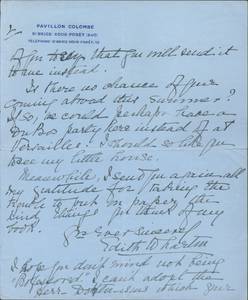 PAVILLON COLOMBE
ST BRICE SOUS FORÊT (S&O)
if you will send it
to me instead.
Is there no chance of your
coming abroad this summer?
If so, we could perhaps have a
Du Bos party here instead of at
Versailles. I should so like you
to see my little house.
Meanwhile, I send you again all
my gratitude for taking the
trouble to put on paper the
kind things you think of my
book.
Yrs ever sincerely
Edith Wharton
I hope you don't mind not being
I can't adopt the
which our